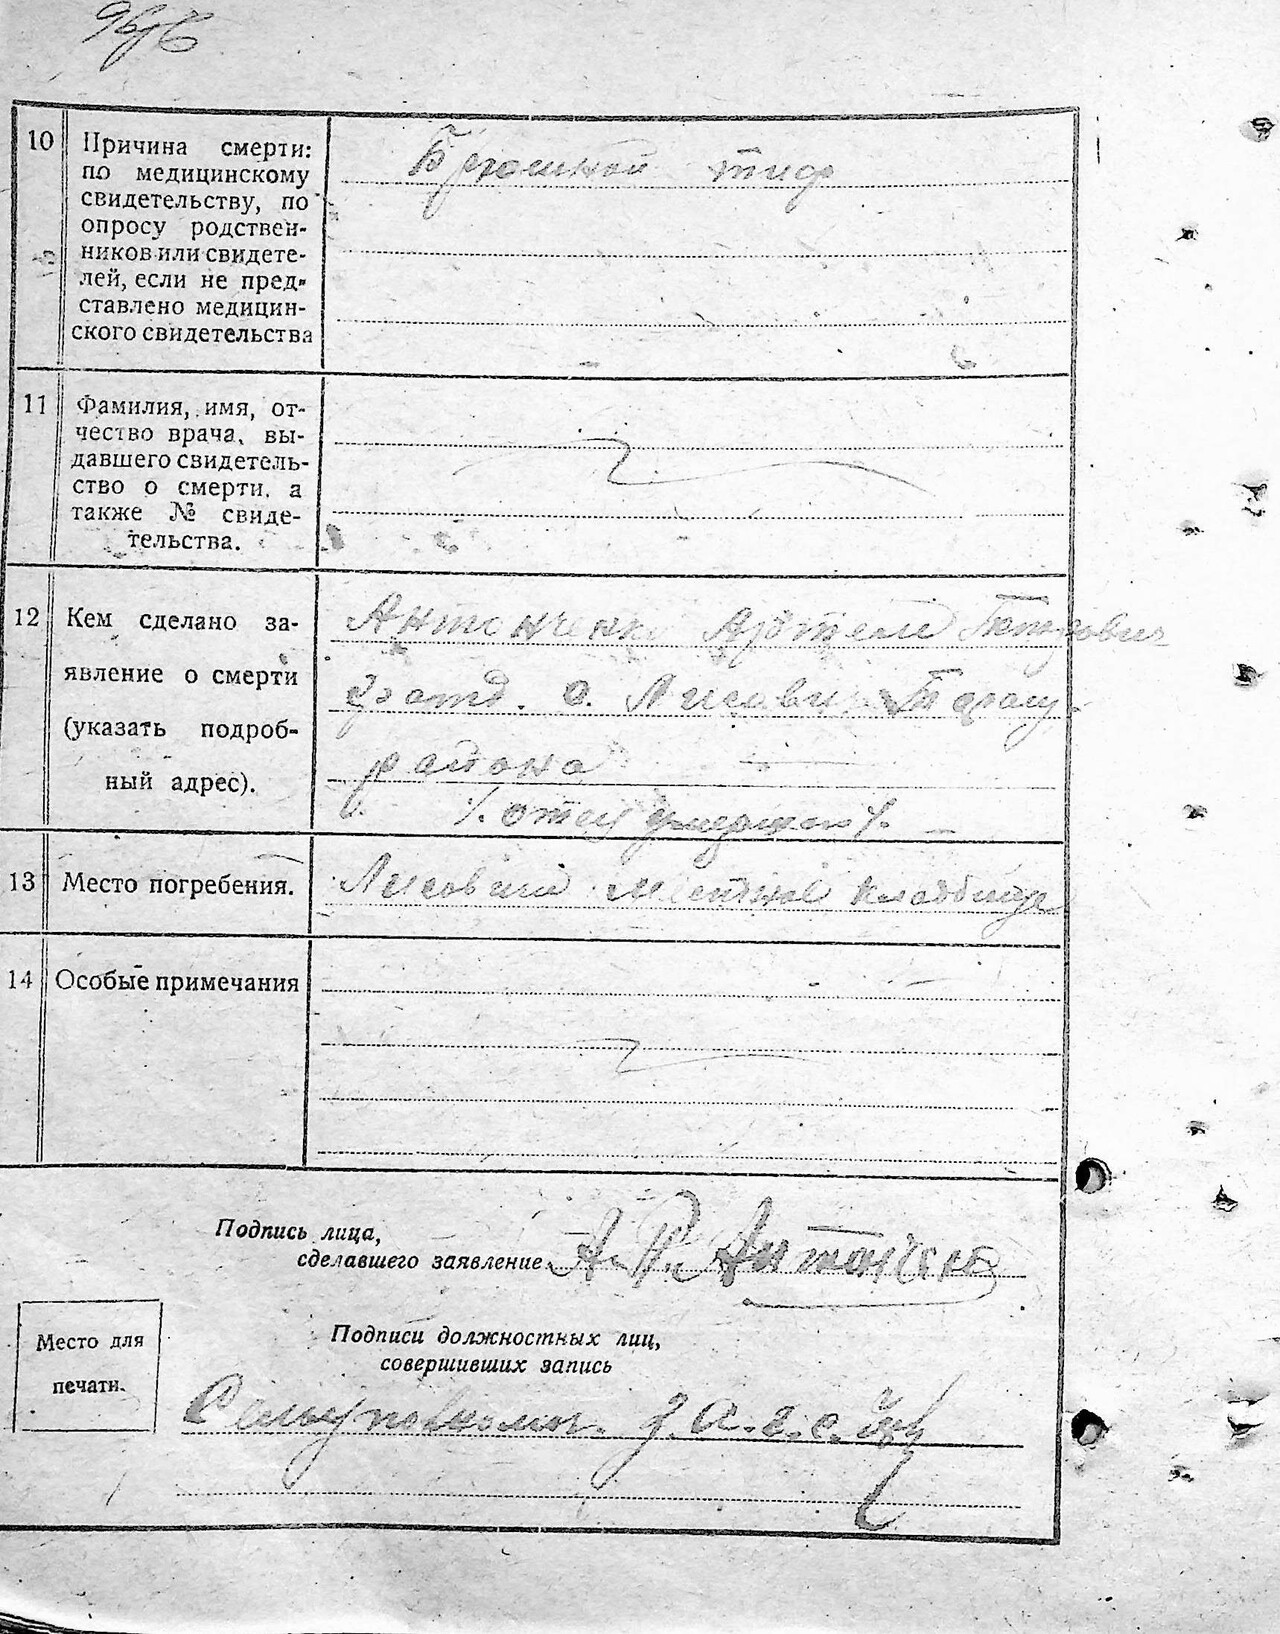 10 Причина смерти:
по медицинскому
свидетельству, по
опросу родствен-
ников или свидете-
лей, если не пред-
ставлено медицин-
ского свидетельства
Брюшной тиф
11 Фамилия, имя, от-
чество врача, вы-
давшего свидетель-
ство о смерти, а
также № свиде-
тельства.
12 Кем сделано за-
явление о смерти
(указать подроб-
ный адрес).
Антонченко Петрович
с.
района
отец
13 Место погребения.
кладбище
14 Особые примечания
Подпись лица,
сделавшего заявление
А. П. Антонченко
Подписи должностных лиц,
совершивших запись
Место для
печати.